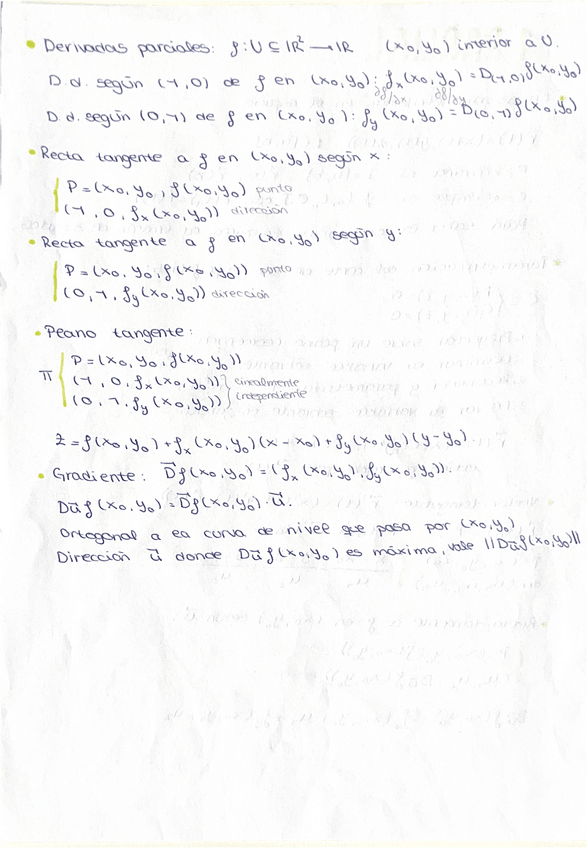 • Derivadas parciales: f: U ⊆ IR² → IR (x₀, y₀) interior a U.
D.d. según (1,0) de f en (x₀, y₀): fₓ(x₀, y₀) = D₍₁,₀₎f(x₀, y₀)
∂f/∂x ∂f/∂y
D.d. según (0,1) de f en (x₀, y₀): f_y(x₀, y₀) = D₍₀,₁₎ f(x₀, y₀)
• Recta tangente a f en (x₀, y₀) según x:
P = (x₀, y₀, f(x₀, y₀) punto
(1, 0, fₓ(x₀, y₀)) dirección
• Recta tangente a f en (x₀, y₀) según y:
P = (x₀, y₀, f(x₀, y₀)) punto
(0, 1, f_y(x₀, y₀)) dirección
• Plano tangente:
P = (x₀, y₀, f(x₀, y₀))
π (1, 0, fₓ(x₀, y₀)) linealmente
(0, 1, f_y(x₀, y₀)) independiente
z = f(x₀, y₀) + fₓ(x₀, y₀)(x - x₀) + f_y(x₀, y₀)(y - y₀)
• Gradiente: D⃗f(x₀, y₀) = (fₓ(x₀, y₀), f_y(x₀, y₀)).
Du⃗ f(x₀, y₀) = D⃗f(x₀, y₀) · u⃗.
Ortogonal a la curva de nivel que pasa por (x₀, y₀)
Dirección u⃗ donde Du⃗ f(x₀, y₀) es máxima, vale ||Du⃗f(x₀, y₀)||